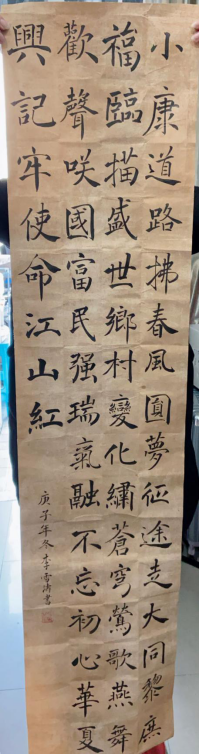 小康道路拂春風圓夢征途走大同黎庶
福臨描盛世鄉村變化繡蒼穹鶯歌燕舞
歡聲咲國富民强瑞氣融不忘初心華夏
興記牢使命江山紅
庚子年冬李雪濤書